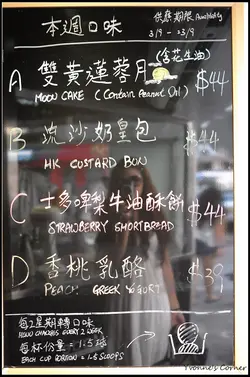 本週口味
供應期限 Availability
3/9 - 23/9
A 雙黃蓮蓉月
(含花生油)
$44
MOON CAKE (Contain Peanut Oil)
B 流沙奶皇包 $44
HK CUSTARD BUN
C 士多啤梨牛油酥餅 $44
STRAWBERRY SHORTBREAD
D 香桃乳酪 $39
PEACH GREEK YOGURT
每2星期轉口味
MENU CHANGES EVERY 2 WEEK
每杯份量 = 1.5球
EACH CUP PORTION = 1.5 SCOOPS
Yvonne's Corner